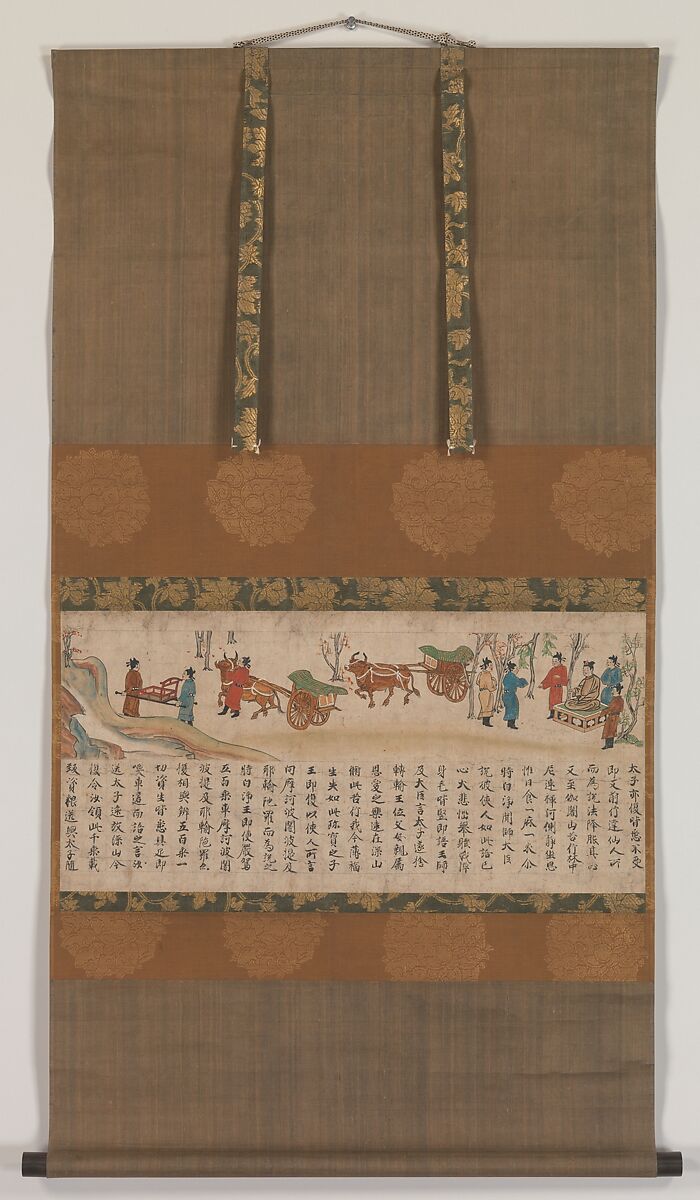 太子亦復皆悉不受
即又前行達仙人所
而為說法降服其心
又至伽闍山苦行林中
尼連禪河側靜坐思
惟日食一麻一米尒
時白淨聞師大臣
說彼使人如此語已
心大悲惱舉體戰掉
身毛皆竪即語王師
及大臣言太子遂捨
轉輪王位父母親屬
恩愛之樂遠在深山
脩此苦行我今薄福
生失如此珎寶之子
王即復以使人所言
向摩訶波闍波提及
耶輸陀羅而為說之
時白淨王即便嚴駕
五百乘車摩訶波闍
波提及耶輸陀羅亦
復相與辨五百乘一
切資生皆悉具足即
喚車匿而語之言汝
送太子遠放深山今
復令汝領此千乘載
致資粮送與太子隨